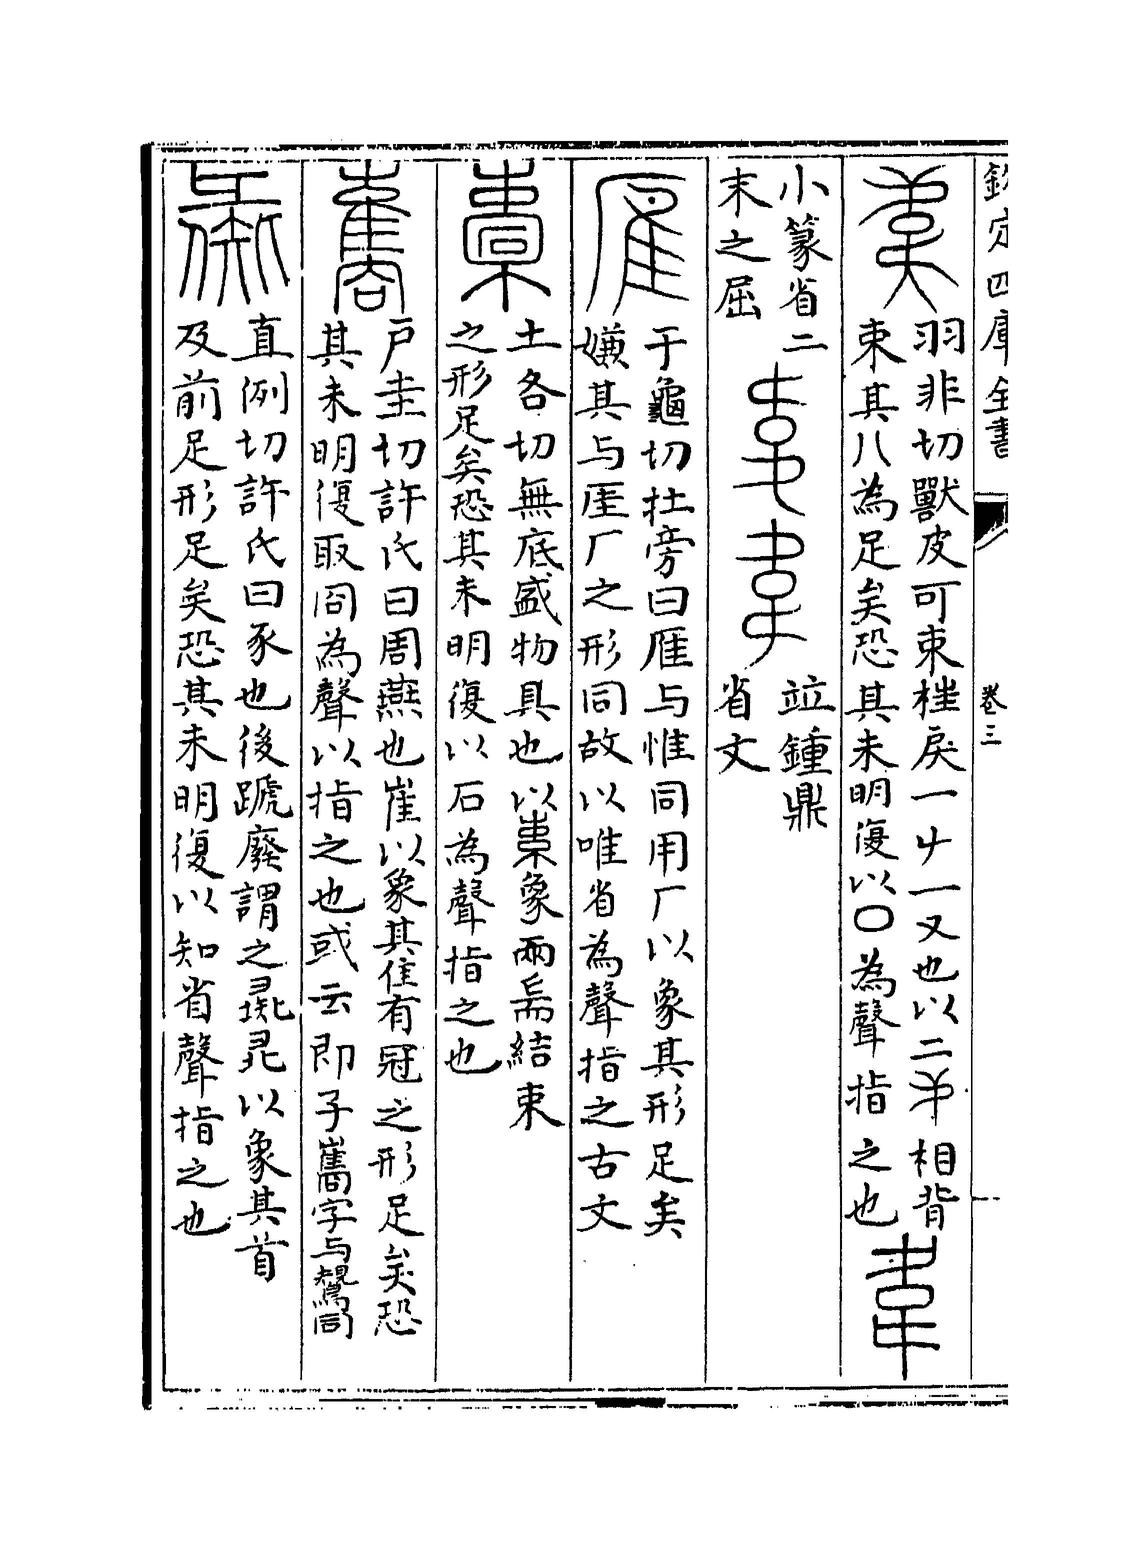 欽定四庫全書
卷三
羽非切獸皮可束枉戾一𠂇一又也以二弟相背
束其八為足矣恐其未明復以囗為聲指之也
小篆省二
末之屈
竝鍾鼎
省文
于龜切扗旁曰雁与惟同用厂以象其形足矣
嫌其与厓厂之形同故以唯省為聲指之古文
土各切無底盛物具也以象兩耑結束
之形足矣恐其未明復以石為聲指之也
戶圭切許氏曰周燕也崔以象其隹有冠之形足矣恐
其未明復取冏為聲以指之也或云即子巂字与鴗同
直例切許氏曰豕也後蹏廢謂之彘彑以象其首
及前足形足矣恐其未明復以知省聲指之也